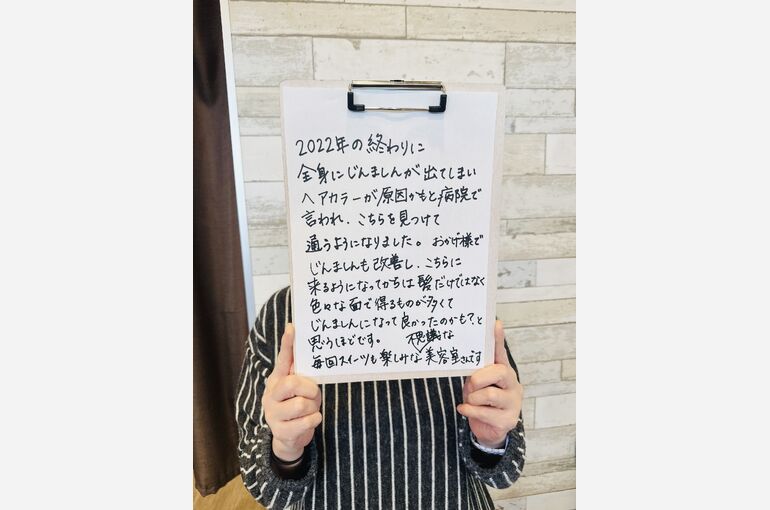 2022年の終わりに
全身にじんましんが出てしまい
ヘアカラーが原因かもと病院で
言われ、こちらを見つけて
通うようになりました。おかげ様で
じんましんも改善し、こちらに
来るようになってからは髪だけではなく
色々な面で得るものが多くて
じんましんになって良かったのかも?と
思うほどです。 不思議な
毎回スイーツも楽しみな美容室さんです